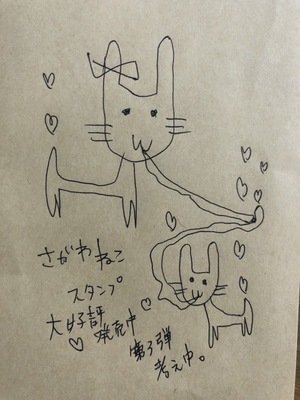 さがわねこ
スタンプ
大好評
発売中
第3弾
考え中。